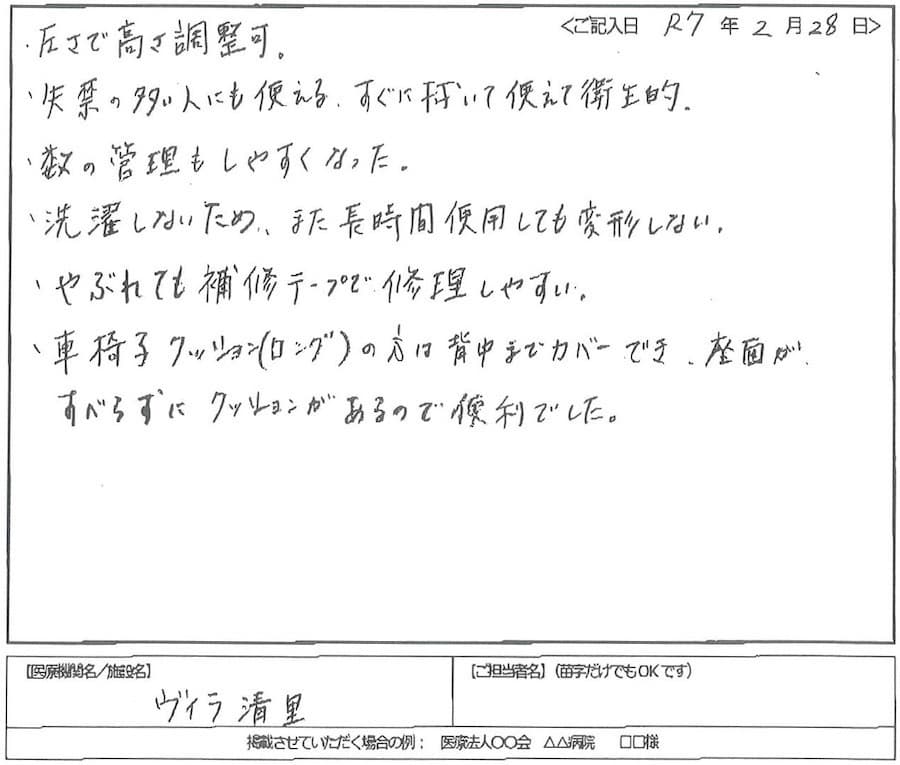 <ご記入日 R7 年 2 月 28 日>
・圧さで高さ調整可。
・失禁の多い人にも使える、すぐに拭いて使えて衛生的。
・数の管理もしやすくなった。
・洗濯しないため、また長時間使用しても変形しない。
・やぶれても補修テープで修理しやすい。
・車椅子クッション(ロング)の方は背中までカバーでき、座面が
すべらずにクッションがあるので便利でした。
【医療機関名/施設名】
ヴィラ清里
【ご担当者名】(苗字だけでもOKです)
掲載させていただく場合の例: 医療法人○○会 △△病院 □□様